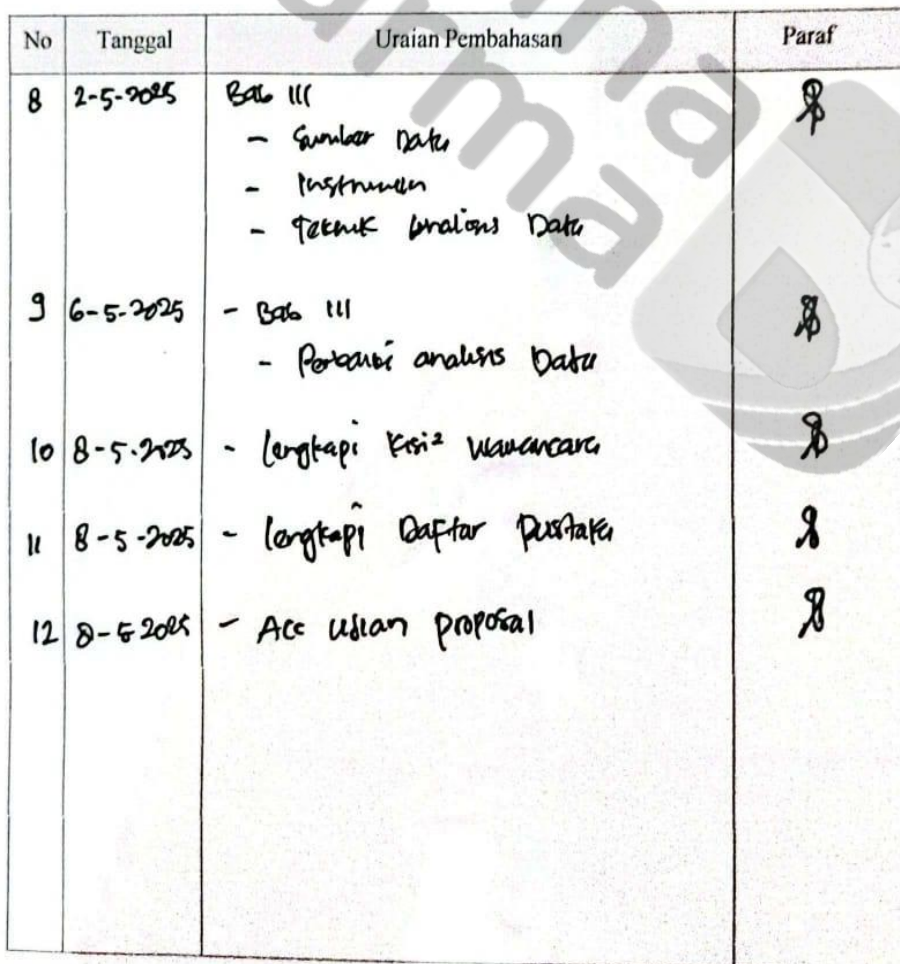 No Tanggal Uraian Pembahasan Paraf
8 2-5-2025 Bab III
- Sumber Data
- Instrumen
- Teknik Analisis Data
9 6-5-2025 - Bab III
- Perbaiki analisis Data
10 8-5-2025 - lengkapi Kisi² wawancara
11 8-5-2025 - lengkapi Daftar Pustaka
12 8-5-2025 - Acc ujian proposal